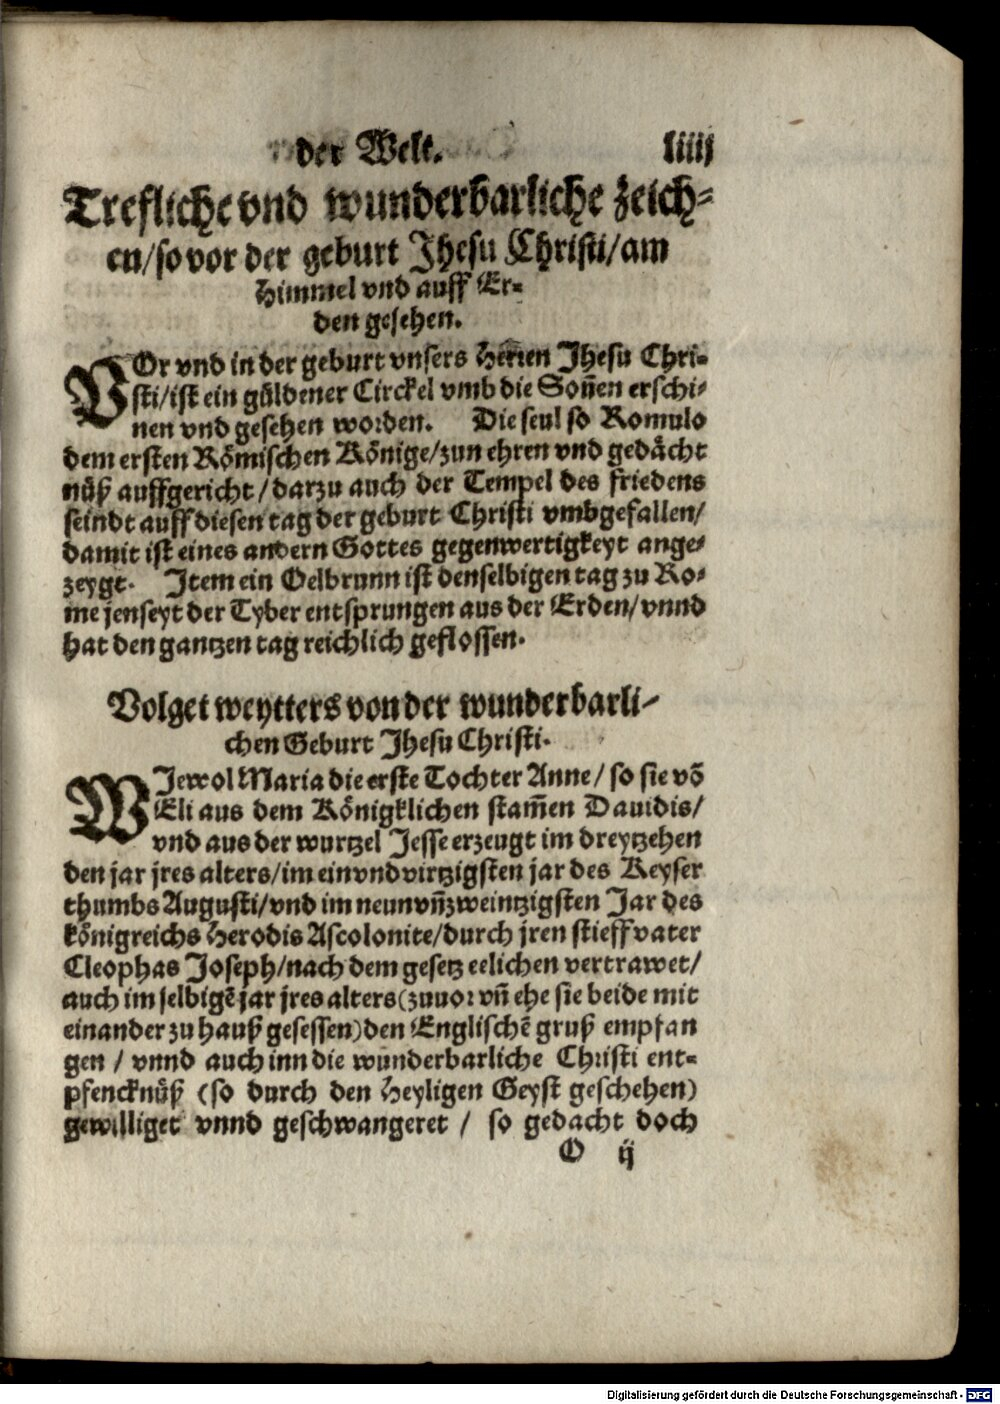 der Welt. liiij
Trefliche vnd wunderbarliche zeich-
en/so vor der geburt Jhesu Christi/am
Himmel vnd auff Er-
den gesehen.
VOr vnd in der geburt vnsers Herren Jhesu Chri-
sti/ist ein güldener Circkel vmb die Soñen erschi-
nen vnd gesehen worden. Die seul so Romulo
dem ersten Römischen Könige/zun ehren vnd gedächt
nüß auffgericht/darzu auch der Tempel des friedens
seindt auff diesen tag der geburt Christi vmbgefallen/
damit ist eines andern Gottes gegenwertigkeyt ange-
zeygt. Item ein Oelbrunn ist denselbigen tag zu Ro-
me jenseyt der Tyber entsprungen aus der Erden/vnnd
hat den gantzen tag reichlich geflossen.
Volget weytters von der wunderbarli-
chen Geburt Jhesu Christi.
WJewol Maria die erste Tochter Anne/so sie vō
Eli aus dem Königklichen stam̃en Dauidis/
vnd aus der wurtzel Jesse erzeugt im dreytzehen
den jar jres alters/im einvndvirtzigsten jar des Keyser
thumbs Augusti/vnd im neunvñzweintzigsten Jar des
königreichs Herodis Ascolonite/durch jren stieffvater
Cleophas Joseph/nach dem gesetz eelichen vertrawet/
auch im selbigē jar jres alters(zuuor vñ ehe sie beide mit
einander zu hauß gesessen)den Englischē gruß empfan
gen / vnnd auch inn die wunderbarliche Christi ent-
pfencknüß (so durch den Heyligen Geyst geschehen)
gewilliget vnnd geschwangeret / so gedacht doch
O ij
Digitalisierung gefördert durch die Deutsche Forschungsgemeinschaft - DFG